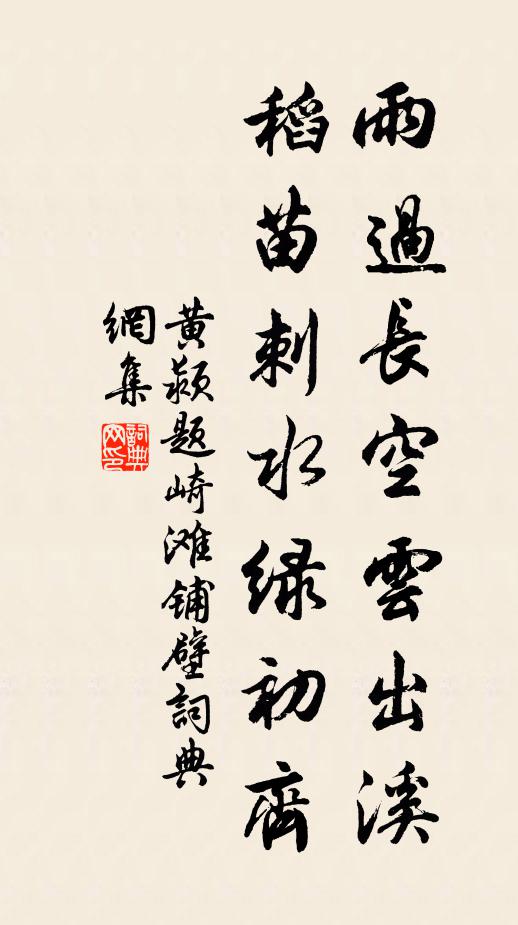 雨過長空雲出溪
稻苗刺水綠初齊
黃潁題崎灘鋪壁詞典
網集
詞典
网印